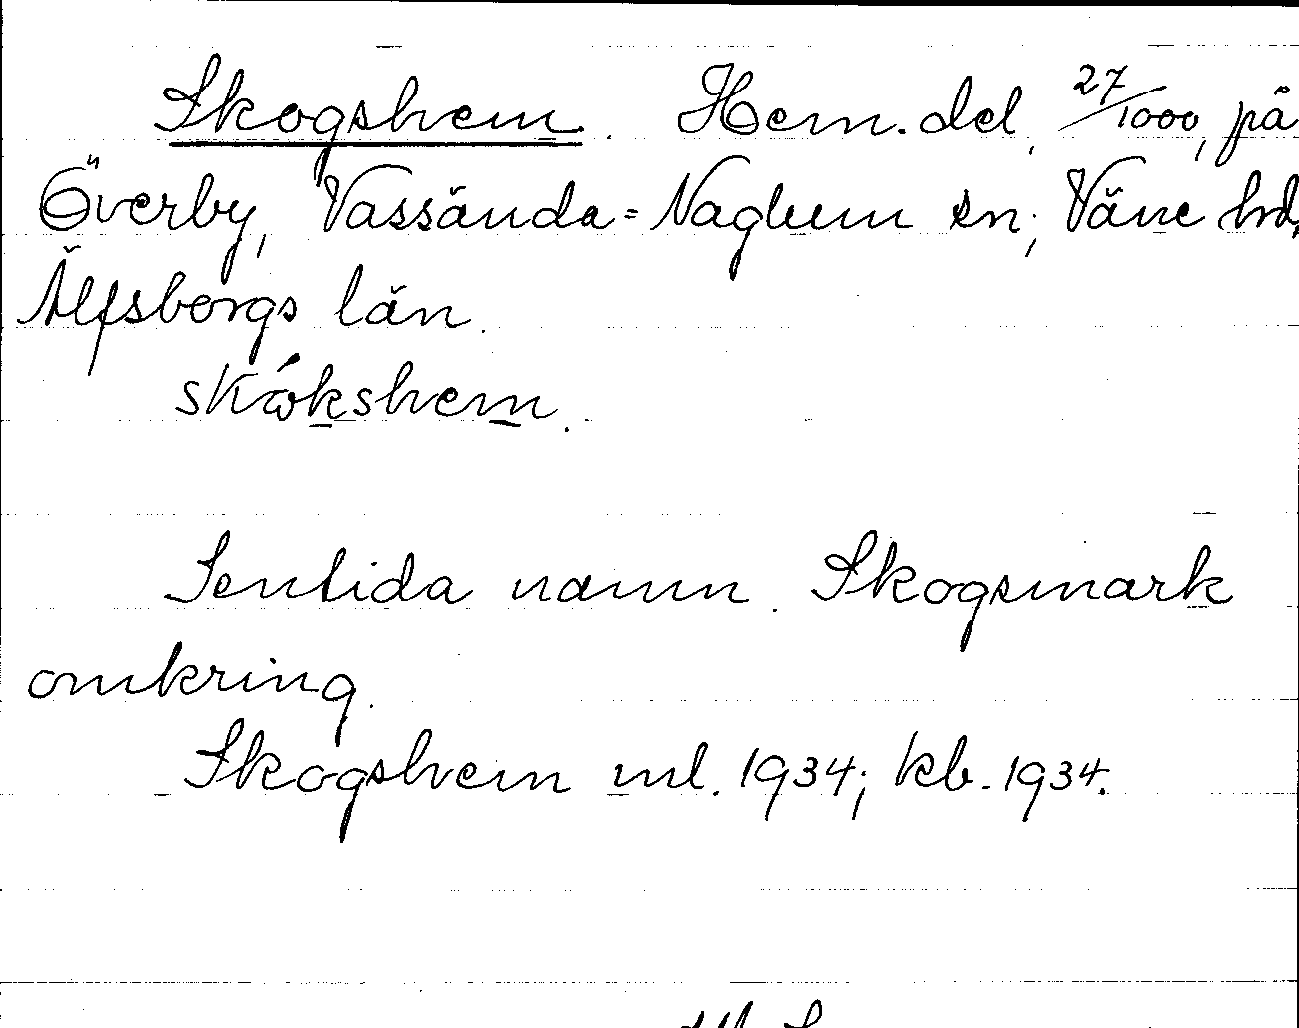 Skogshem. Hem.del, 27/1000, på
Överby, Vassända=Naglum sn, Väne hd,
Älfsborgs län.
skókshem.
Sentida namn. Skogsmark
omkring.
Skogshem ml. 1934; kb. 1934.